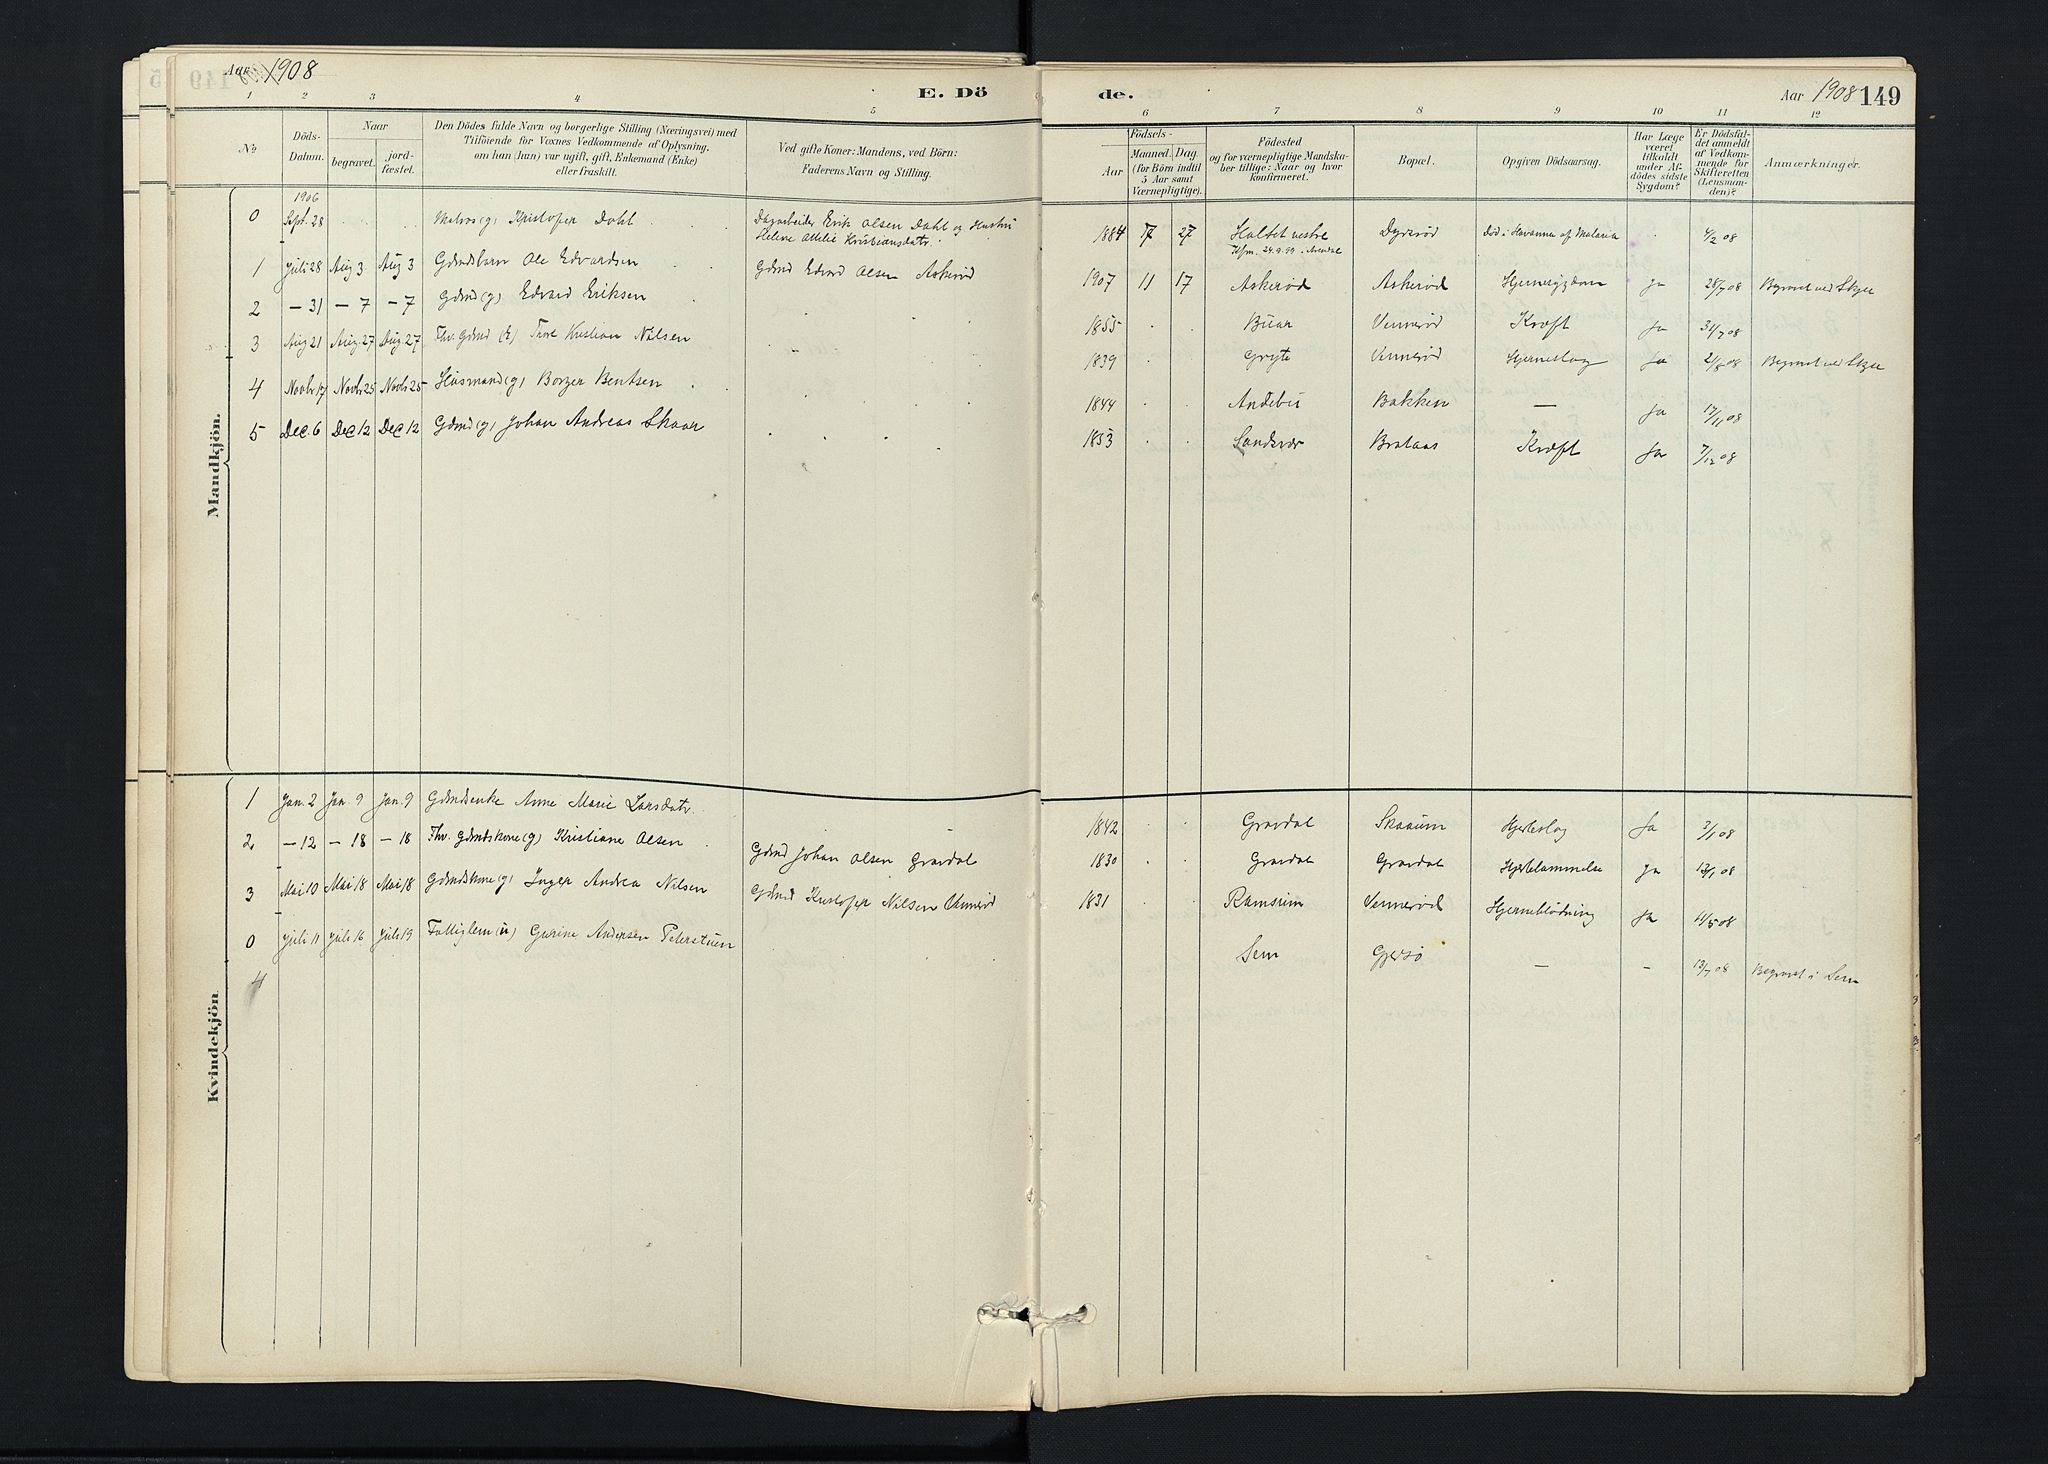 Aar 1908
E. Döde.
Aar 1908 149
1 2 3 4 5 6 7 8 9 10 11 12
No
Döds-Datum.
Naar
begravet.
jord-fæstet.
Den Dödes fulde Navn og borgerlige Stilling (Næringsvei) med
Tilföiende for Voxnes Vedkommende af Oplysning,
om han (hun) var ugift, gift, Enkemand (Enke)
eller fraskilt.
Ved gifte Koner: Mandens, ved Börn:
Faderens Navn og Stilling.
Födsels-
Aar
Maaned.
Dag
(for Börn indtil
5 Aar samt
Værnepligtige).
Födested
og for værnepligtige Mandska-
ber tillige: Naar og hvor
konfirmeret.
Bopæl.
Opgiven Dödsaarsag.
Har Læge
været
tilkaldt
under Af-
dödes sidste
Sygdom?
Er Dödsfal-
det anmeldt
af Vedkom-
mende for
Skifteretten
(Lensman-
den)?
Anmærkninger.
Mandkjön.
1906
0 Sept. 28 Matros (g) Kristofer Dahl Dagarbeider Erik Olsen Dahl og Hustru 1884 7 27 Holtet vestre Dyrsrød Død i Havanna af Malaria 4/2 08
Helene Athelie Kristiansdatr. Kfm. 24.9.99 i Arendal
1 Juli 28 Aug 3 Aug 3 Gdmdsbarn Ole Edvardsen Gdmd Edvard Olsen Askerød 1907 11 17 Askerød Askerød Hjernesygdom ja 28/7 08 Begravet ved Skjee
2 – 31 – 7 – 7 Gdmd (g) Edvard Eriksen 1855 Buar Vennerød Kræft Ja 31/7 08
3 Aug 21 Aug. 27 Aug. 27 Fhv. Gdmd (E) Thore Kristian Nilsen 1839 Gryte Vennerød Hjerneslag Ja 21/8 08 Begravet ved Skjee
4 Novbr 17 Novbr 25 Novbr 25 Husmand (g) Borger Bentsen 1844 Andebu Bakken — Ja 17/11 08
5 Dec. 6 Dec 12 Dec 12 Gdmd (g) Johan Andreas Skaar 1853 Sandsvær Brataas Kræft Ja 7/12 08
Kvindekjön
1 Jan. 2 Jan. 9 Jan. 9 Gdmdsenke Anne Marie Larsdatr. 1842 Gravdal Skaaum Hjerteslag Ja 3/1 08
2 – 12 – 18 – 18 Fhv. Gdmdskone (g) Kristiane Olsen Gdmd Johan Olsen Gravdal 1830 Gravdal Gravdal Hjertelammelse Ja 13/1 08
3 Mai 10 Mai 18 Mai 18 Gdmdskone (g) Inger Andrea Nilsen Gdmd Kristofer Nilsen Vennerød 1831 Ramsum Vennerød Hjerneblödning Ja 11/5 08
0 Juli 11 Juli 16 Juli 19 Fattiglem (u) Gurine Andersen Peterstuen Sem Gjersø — – 13/7 08 Begravet i Sem
4